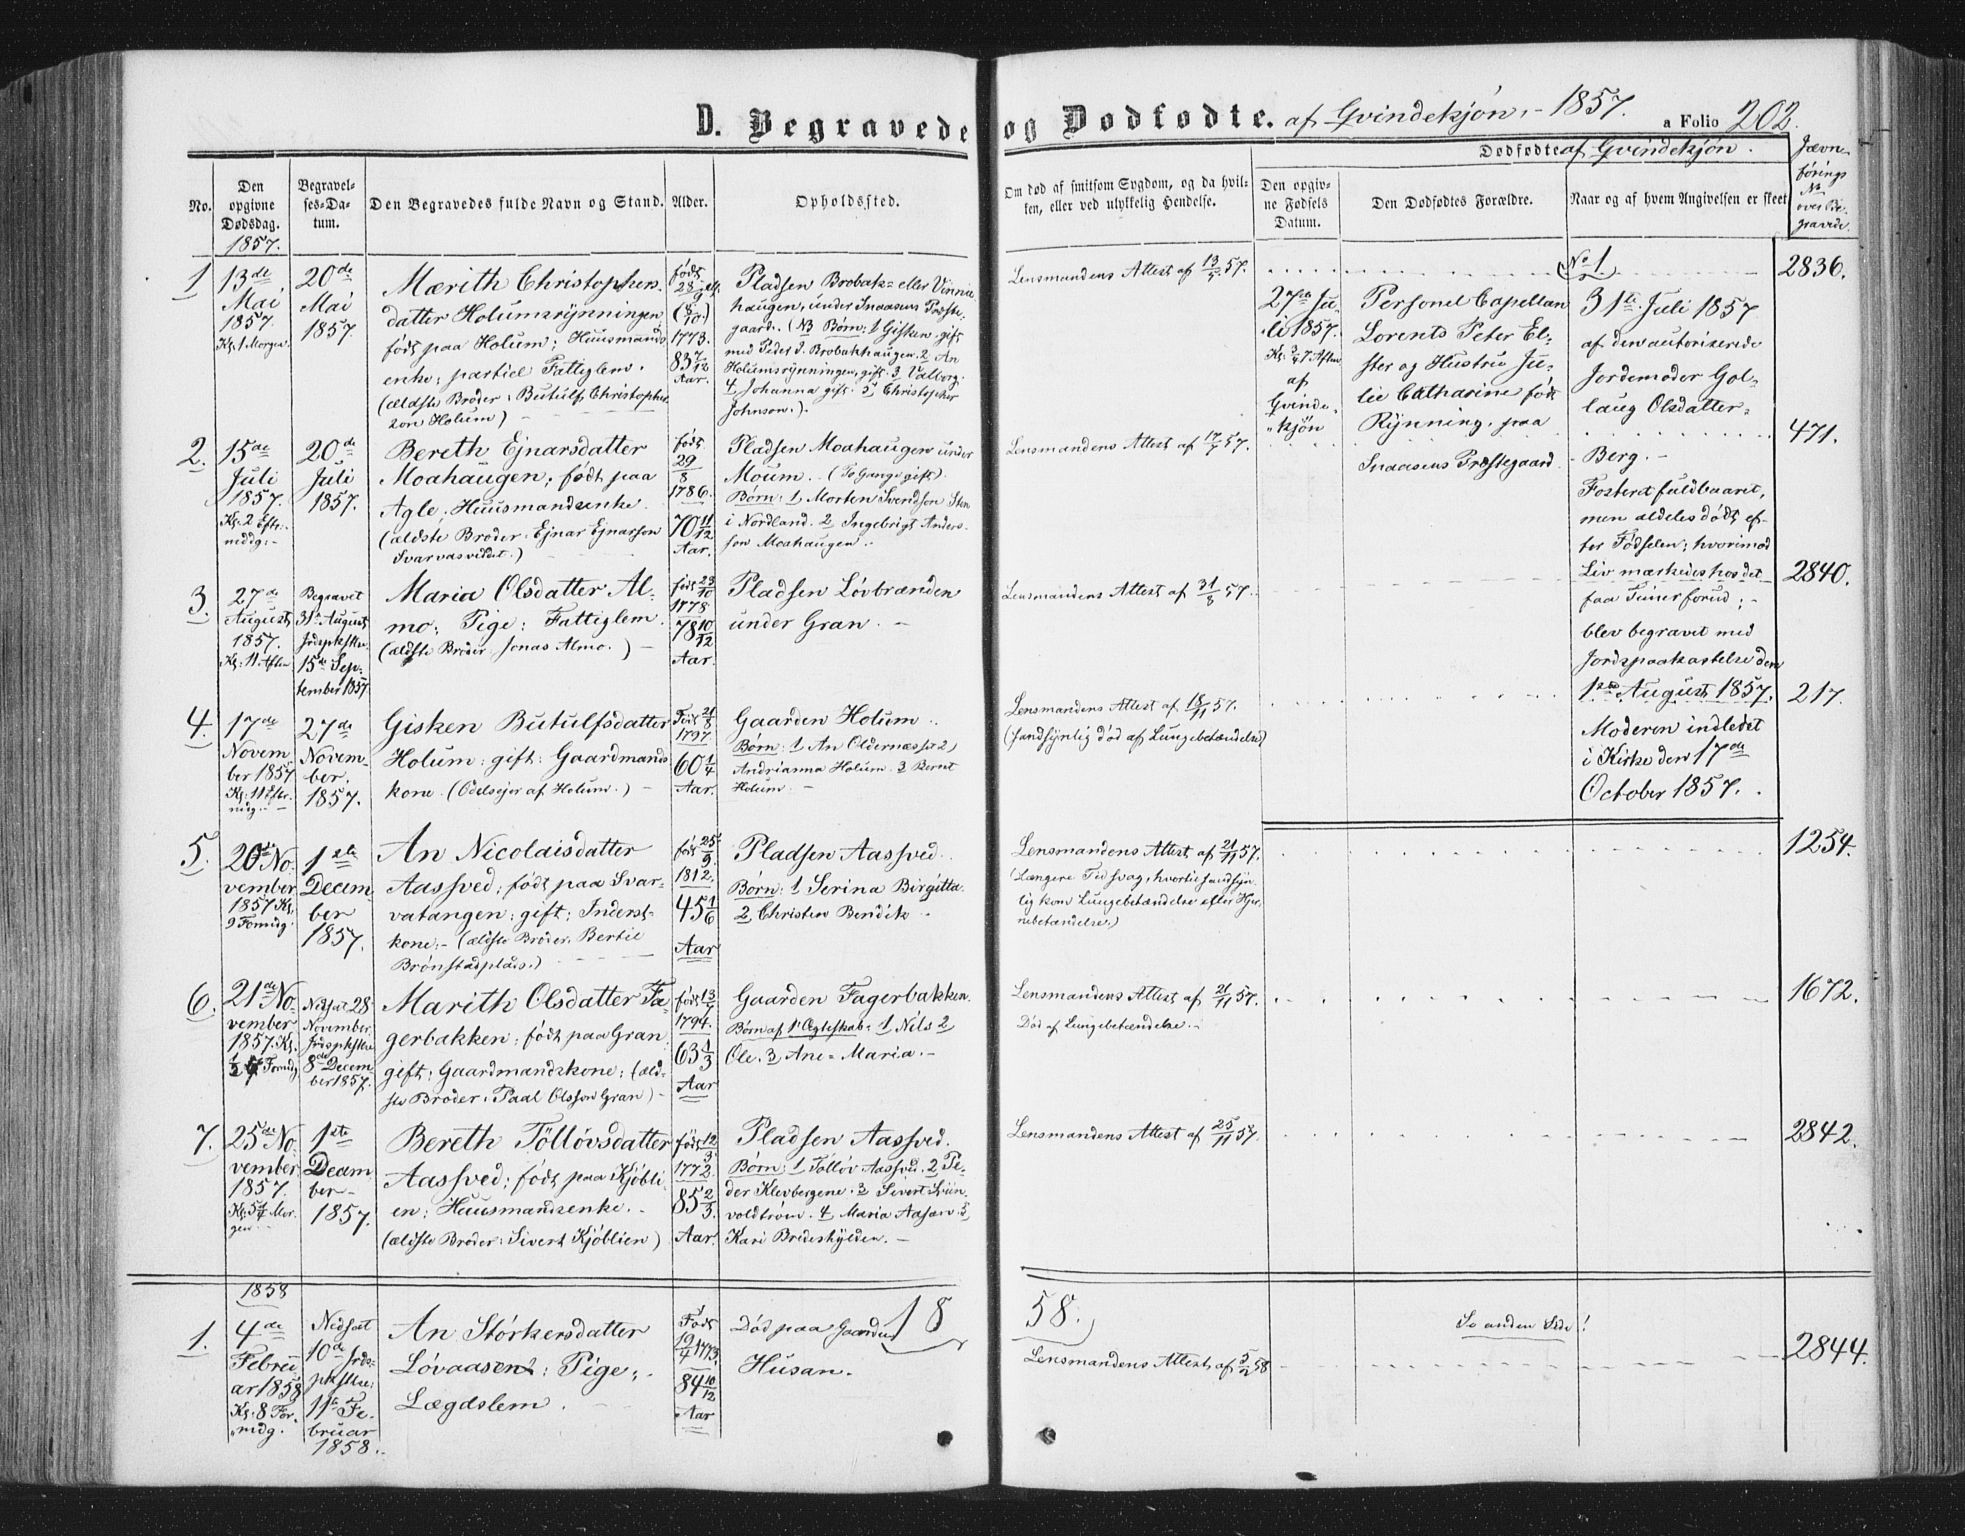 D. Begravede og Dødfødte. af Qvindekjøn. - 1857. a Folio 202.
No.
Den opgivne Dødsdag.
1857.
Begravelses-Datum.
Den Begravedes fulde Navn og Stand.
Alder.
Opholdssted.
Om død af smitsom Sygdom, og da hvilken, eller ved ulykkelig Hendelse.
Dødfødte af Qvindekjøn.
Den opgivne Fødsels Datum.
Den Dødfødtes Forældre.
Naar og af hvem Angivelsen er skeet
Jævnførings No over Begravede.
1
13de
Mai
1857.
Kl. 1 Morgen.
20de
Mai
1857.
Mærith Christophers-
datter Holumsrynningen
født paa Holum; Huusmands
enke; partiel Fattiglem.
(ældste Broder: Butulf Christopher
son Holum)
født
1773.
83 7/12
Aar.
Pladsen Brobak- eller Vinnia
haugen, under Snaasens Præste-
gaard. (N3 Børn: 1 Gisken gift
med Peder J. Brobakhaugen. 2 An
Holumsrynningen, gift. 3 Valborg.
4 Johanna gift. 5 Christopher
Johnson.)
Lensmandens Attest af 13/5 57.
No 1.
2836.
27de Ju-
li 1857.
Kl: 3/4 7 Aften
af
Qvinde-
kjøn
Personel Capellan
Lorents Peter El-
ster og Hustru Ju-
lie Catharine født
Rynning, paa
Snaasens Præstegaard.
31te Juli 1857
af den autoriserede
Jordemoder Gol-
laug Olsdatter
Berg. -
Fosteret fuldbaaret,
men aldeles dødt ef-
ter Fødselen; hvorimod
Liv mærkedes hos det
faa Timer forud; -
blev begravet med
Jordspaakastelse den
1ste August 1857.
Moderen indledet
i Kirke den 17de
October 1857.
2.
15de
Juli
1857.
Kl. 2 Efter-
middg:-
20de
Juli
1857.
Bereth Ejnarsdatter
Moahaugen; født paa
Agle; Huusmandsenke.
(ældste Broder: Ejnar Ejnarson
Svarvasviddet.)
født
29/8
1786.
70 11/12
Aar.
Pladsen Moahaugen under
Moum. (To Gange gift)
Børn: 1, Morten Svendson Sten
i Nordland. 2 Ingebrigt Anders-
son Moahaugen.
Lensmandens Attest af 17/7 57.
471.
3.
27de
August
1857.
Kl: 11 Aften
Begravet
31te August
Jordspkstlse
15de Sep-
tember 1857
Maria Olsdatter Al-
mo; Pige; Fattiglem.
(ældste Broder: Jonas Almo.) -
født 23/10
1778
78 10/12
Aar.
Pladsen Løvbrænden
under Gran. -
Lensmandens Attest af 31/8 57.
2840.
4.
17de
Novem
ber 1857
Kl: 11 Efter-
mdg.-
27de
Novem-
ber.
1857.
Gisken Butulfsdatter
Holum: gift: Gaardmands
kone. (Odelsejer af Holum.) -
Født 21/8
1797
60 1/4
Aar.
Gaarden Holum.
Børn: 1 An Oldernæsset 2,
Andrianna Holum. 3 Bernt
Holum. -
Lensmandens Attest af 18/11 57.
(sandsynlig død af Lungebetændelse)
217.
5.
20de No-
vember
1857 Kl.
9 Formdg.
1ste
Decem
ber
1857.
An Nicolaisdatter
Aassved; født paa Svar-
vatangen; gift; Inderst-
kone. - (ældste Broder: Bertil
Brønstadplads.)
født 25/9
1812.
45 1/6
Aar
Pladsen Aassved.
Børn: 1 Serina Birgitta.
2 Christen Bendik.
Lensmandens Attest af 21/11 57.
(Længere Tid svag, hvortil sandsyn
lig kom Lungebetændelse efter Hjer-
nebetændelse.)
1254.
6.
21de No-
vember
1857. Kl.
Formdg
Nedsat 28
November,
Jrdspkstlse
8de Decem-
ber 1857.
Marith Olsdatter Fa
gerbakken; født paa Gran
gift; Gaardmandskone; (æld-
ste Broder: Paal Olsson Gran) -
født 13/7
1794.
63 1/3
Aar
Gaarden Fagerbakken.
Børn af 1te Ægteskab: 1 Nils 2
Ole. 3 Ane-Maria. -
Lensmandens Attest af 21/11 57.
Død af Lungebetændelse. -
1672.
7.
25de No
vember
1857.
Kl: 5 1/4 Mor
gen
1ste
Decem
ber
1857.
Bereth Tølløvsdatter
Aassved; født paa Kjøbli-
en; Huusmandsenke. -
(ældste Broder: Sivert Kjøblien)
født 12/3
1772.
85 2/3.
Aar.
Pladsen Aassved.
Børn: 1 Tølløv Aassved. 2 Pe-
der Klevbergene. 3 Sivert
voldtrøen. 4 Maria Aasærn. 5,
Kari Bredeskylden. -
Lensmandens Attest af 25/11 57.
2842.
1858
1858.
Se anden Side!
1.
4de
Febru
ar 1858
Kl: 8 For-
mdg.
Nedsat
10de Jrds-
pkstlse:
11te Fe-
bruar
1858.
An Størkersdatter
Løvaasen; Pige;
Lægdslem.
Født
19/4 1773.
84 10/12
Aar
Død paa Gaarden
Husan.
Lensmandens Attest af 5/2 58
2844.